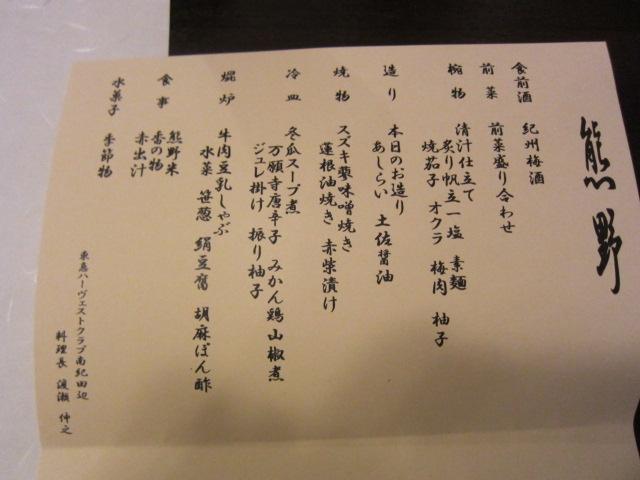 熊野
食前酒　紀州梅酒
前菜　前菜盛り合わせ
椀物　清汁仕立て
炙り帆立一塩　素麺
焼茄子　オクラ　梅肉　柚子
造り　本日のお造り
あしらい　土佐醤油
焼物　スズキ蓼味噌焼き
蓮根油焼き　赤柴漬け
冷皿　冬瓜スープ煮
万願寺唐辛子　みかん鶏山椒煮
ジュレ掛け　振り柚子
焜炉　牛肉豆乳しゃぶ
水菜　笹葱　絹豆腐　胡麻ぽん酢
食事　熊野米
香の物
赤出汁
水菓子　季節物
東急ハーヴェストクラブ南紀田辺
料理長　渡瀬　伸之